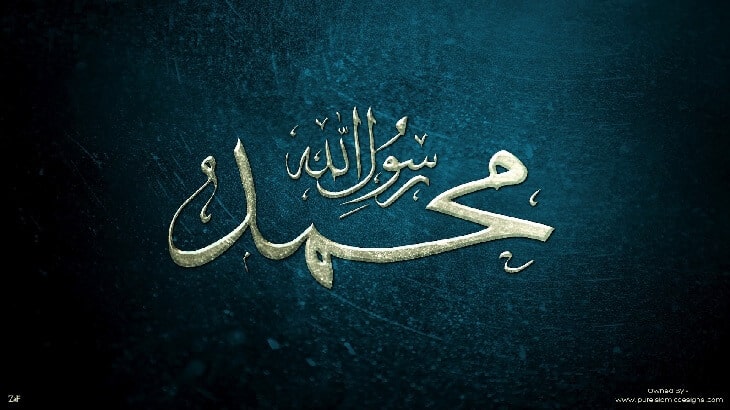 محمد
رسول الله
ZaF
Owned By -
www.pureislamicdesigns.com